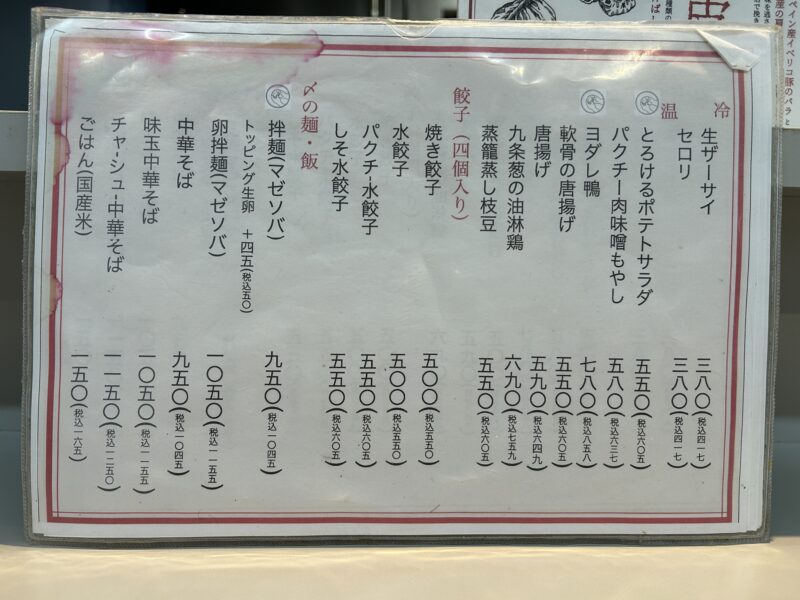 冷
生ザーサイ 三八〇(税込四一七)
セロリ 三八〇(税込四一七)
温
とろけるポテトサラダ 五五〇(税込六〇五)
パクチー肉味噌もやし 五八〇(税込六三七)
ヨダレ鴨 七八〇(税込八五八)
軟骨の唐揚げ 五五〇(税込六〇五)
唐揚げ 五九〇(税込六四九)
九条葱の油淋鶏 六九〇(税込七五九)
蒸籠蒸し枝豆 五五〇(税込六〇五)
餃子(四個入り)
焼き餃子 五〇〇(税込五五〇)
水餃子 五〇〇(税込五五〇)
パクチー水餃子 五五〇(税込六〇五)
しそ水餃子 五五〇(税込六〇五)
〆の麺・飯
拌麺(マゼソバ) 九五〇(税込一〇四五)
トッピング生卵 +四五(税込五〇)
卵拌麺(マゼソバ) 一〇五〇(税込一一五五)
中華そば 九五〇(税込一〇四五)
味玉中華そば 一〇五〇(税込一一五五)
チャーシュー中華そば 一一五〇(税込一二五〇)
ごはん(国産米) 一五〇(税込一六五)
ペイン産イベリコ豚のバラと